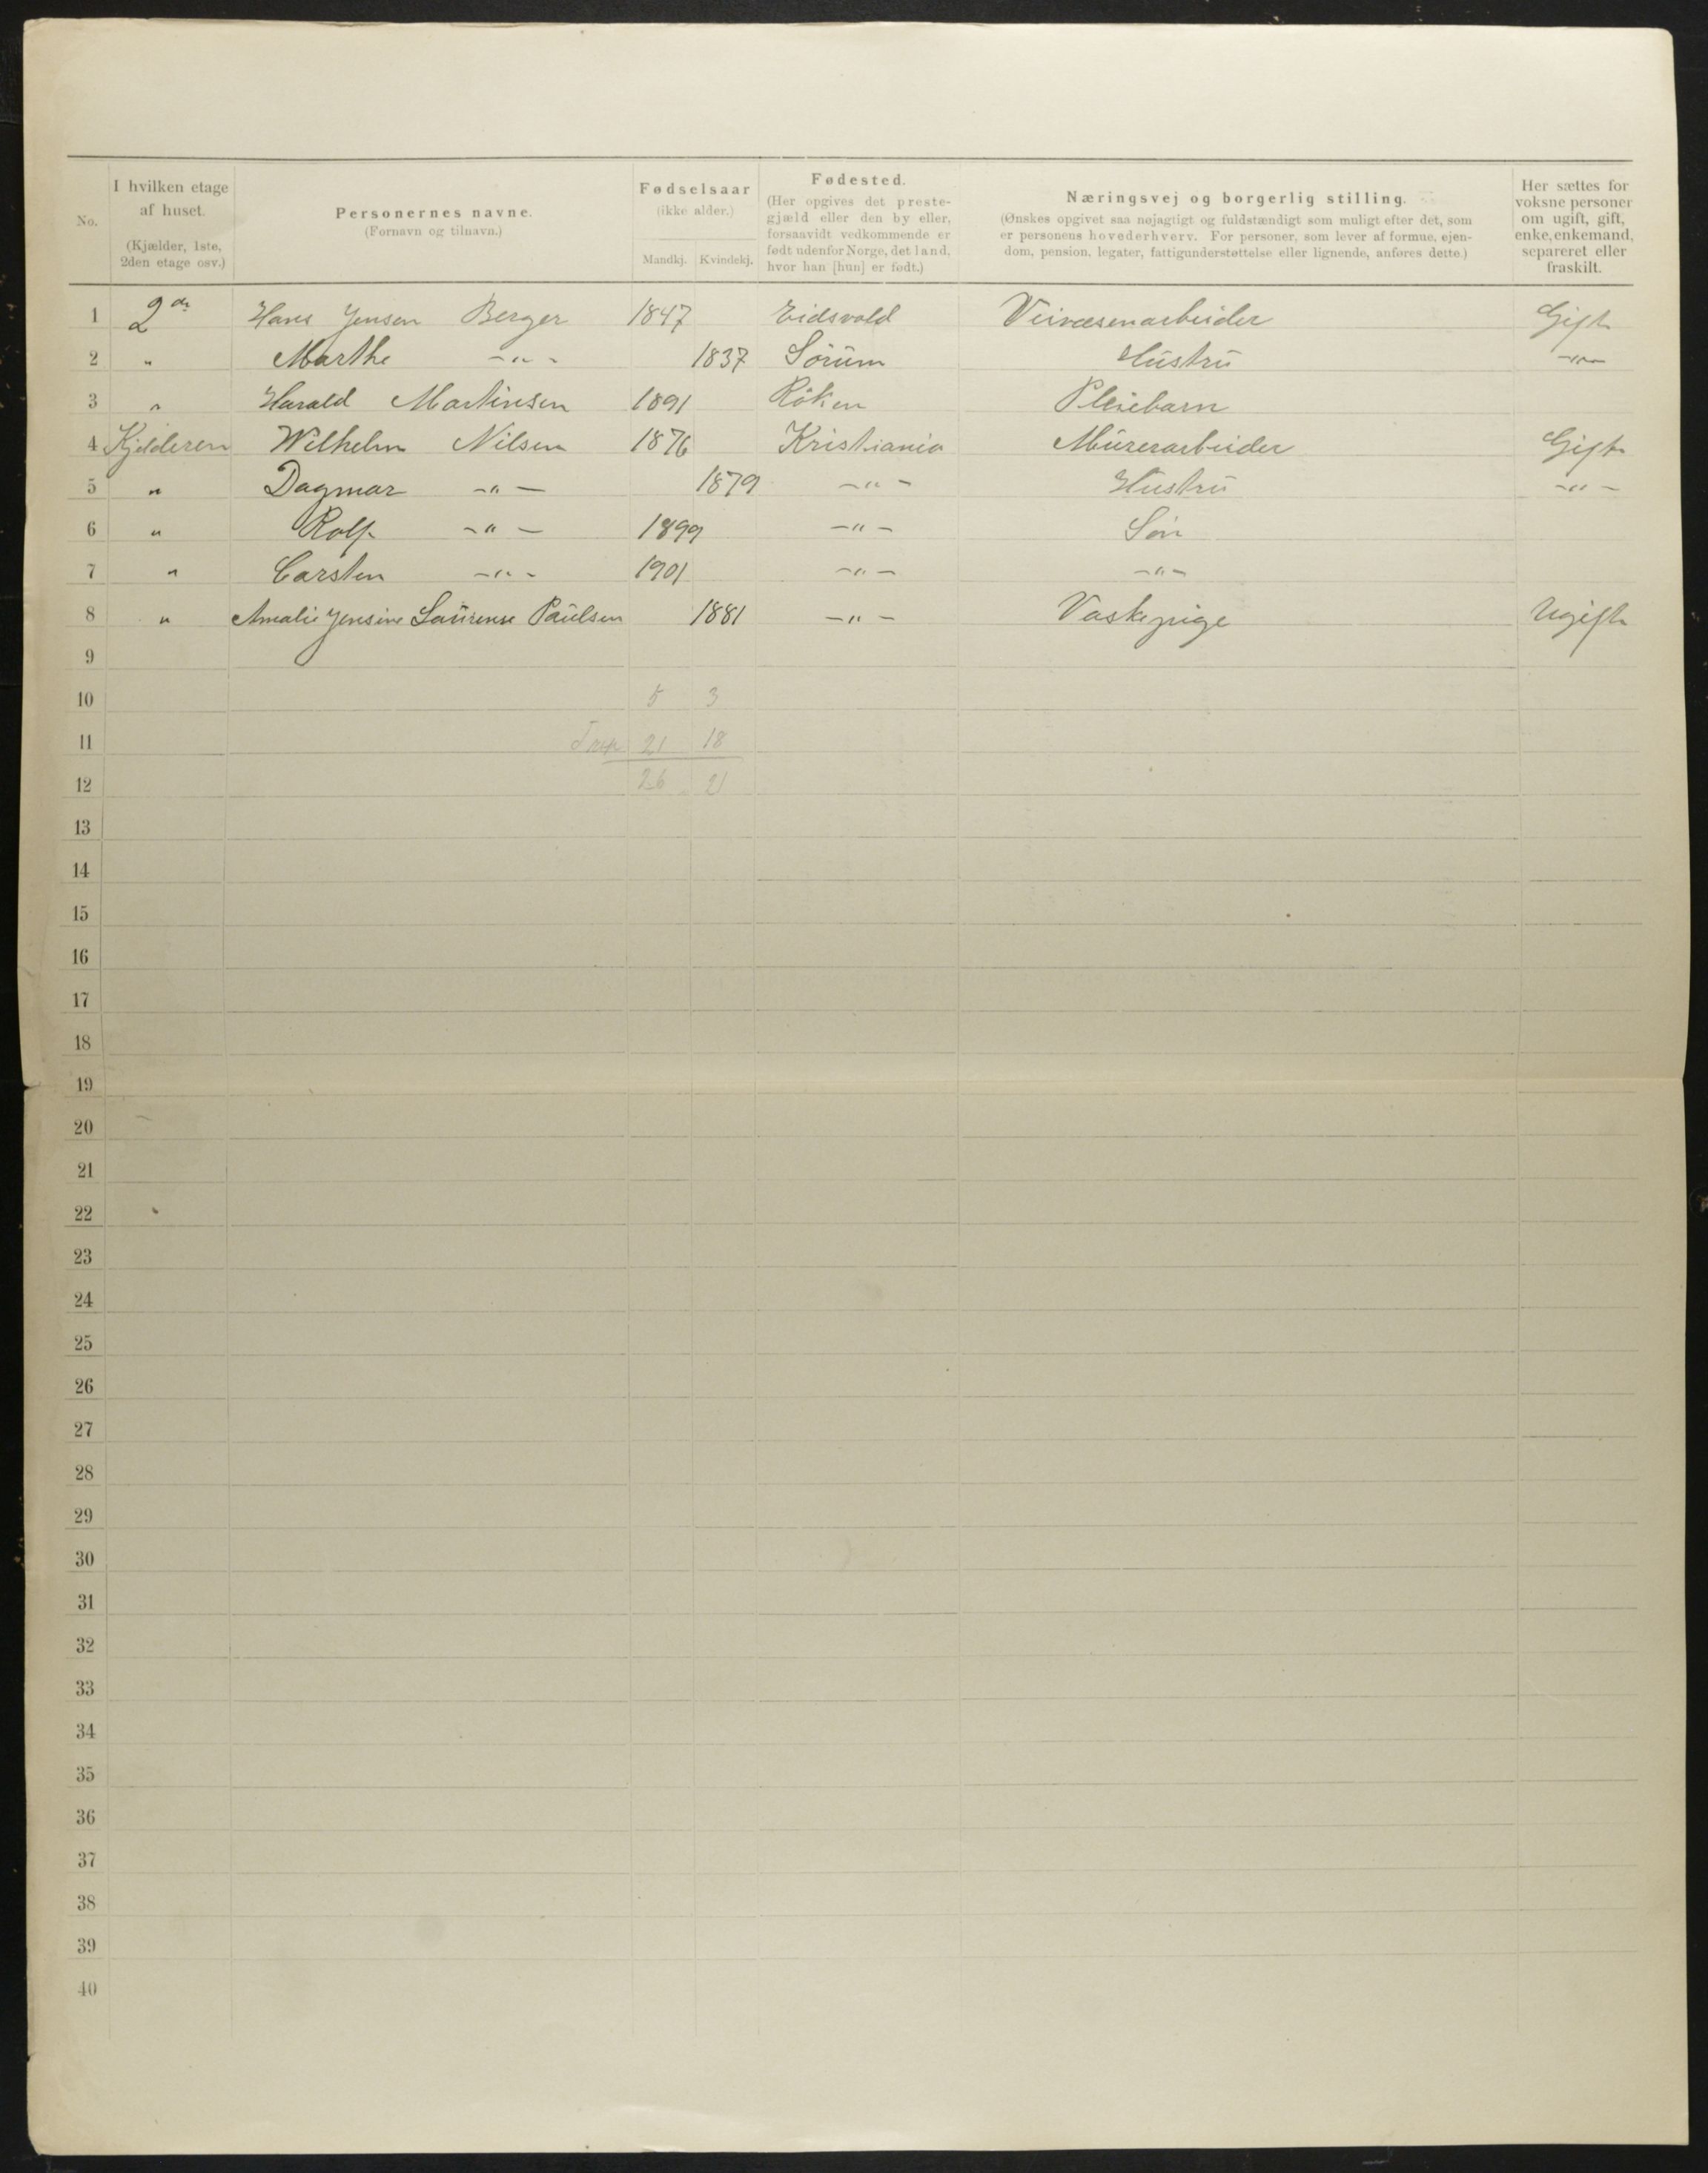 No.
I hvilken etage
af huset.
(Kjælder, 1ste,
2den etage osv.)
Personernes navne.
(Fornavn og tilnavn.)
Fødselsaar
(ikke alder.)
Mandkj. Kvindekj.
Fødested.
(Her opgives det preste-
gjæld eller den by eller,
forsaavidt vedkommende er
født udenfor Norge, det land,
hvor han [hun] er født.)
Næringsvej og borgerlig stilling.
(Ønskes opgivet saa nøjagtigt og fuldstændigt som muligt efter det, som
er personens hovederhverv. For personer, som lever af formue, ejen-
dom, pension, legater, fattigunderstøttelse eller lignende, anføres dette.)
Her sættes for
voksne personer
om ugift, gift,
enke, enkemand,
separeret eller
fraskilt.
1 2 Hans Jensen Berger 1847 Eidsvold Veivæsenarbeider Gift
2 " Marthe -"- 1837 Sörŭm Hŭstrŭ -"-
3 " Harald Martinsen 1891 Röken Pleiebarn
4 Kjelderen Wilhelm Nilsen 1876 Kristiania Mŭrerarbeider Gift
5 " Dagmar -"- 1879 -"- Hustrŭ -"-
6 " Rolf -"- 1899 -"- Sön
7 " Carsten -"- 1901 -"- -"-
8 " Amalie Jensine Laŭrense Paŭlsen 1881 -"- Vaskepige Ugift
9
10 5 3
11 21 18
12 26 21
13
14
15
16
17
18
19
20
21
22
23
24
25
26
27
28
29
30
31
32
33
34
35
36
37
38
39
40